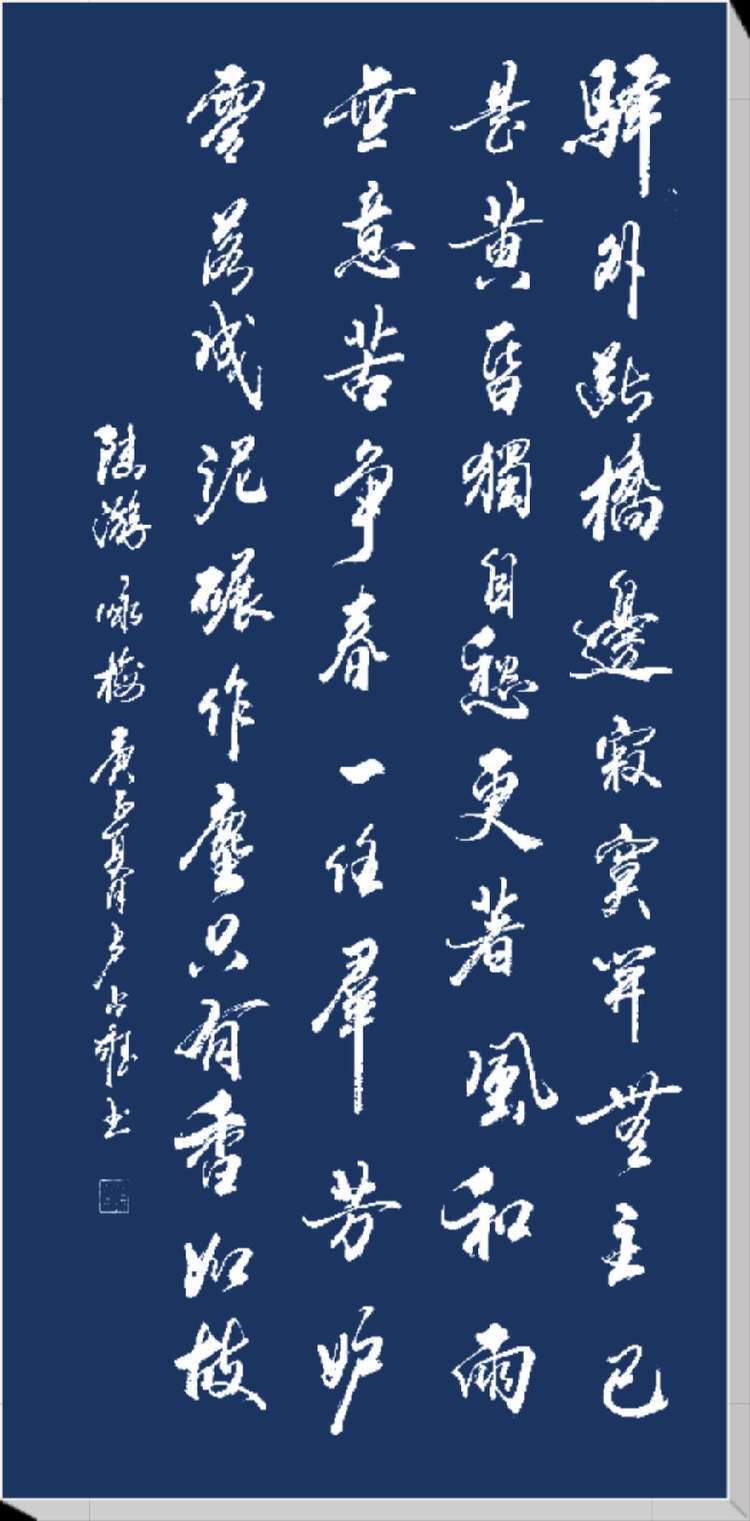 驛外斷橋邊寂寞開無主已
是黃昏獨自愁更著風和雨
無意苦爭春一任羣芳妒
零落成泥碾作塵只有香如故
陸游咏梅庚子夏月盧占雅书